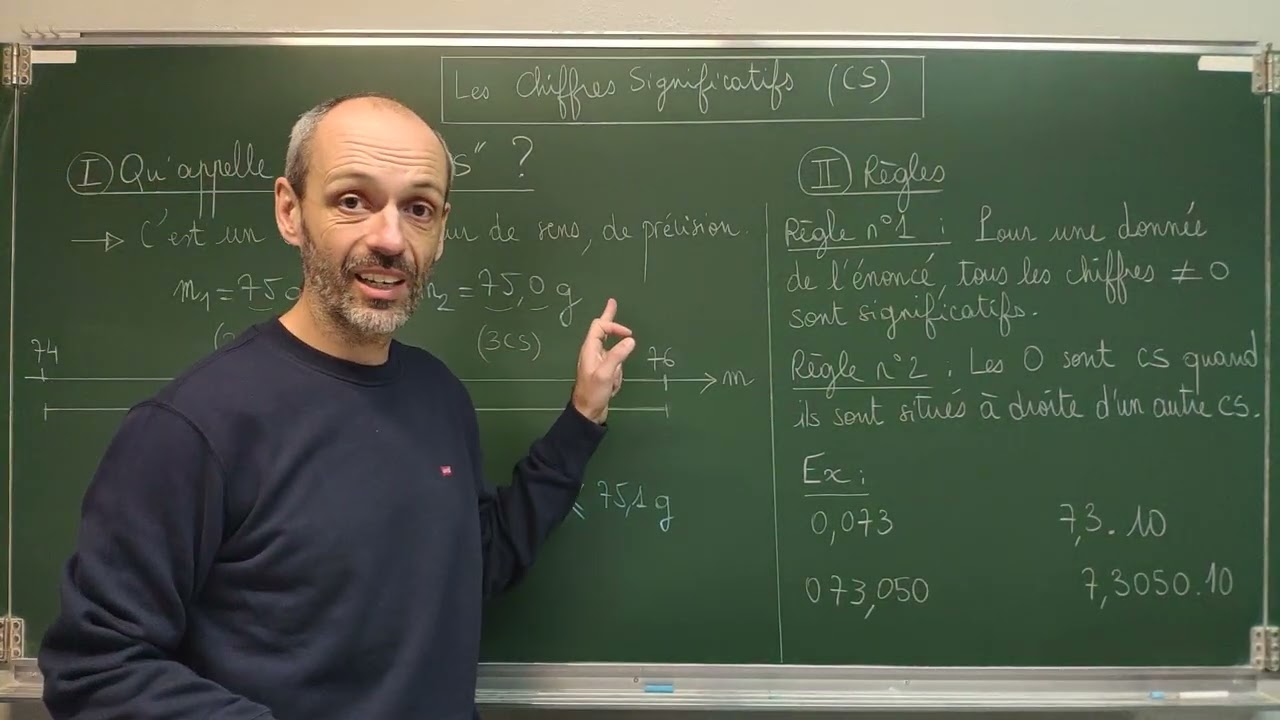 Les Chiffres Significatifs (CS)
I Qu'appelle S" ?
→ C'est un de sens, de précision.
m1 = 75 m2 = 75,0 g
(3CS)
74 76 m
75,1 g
II Règles
Règle n°1 : Pour une donnée
de l'énoncé, tous les chiffres ≠ 0
sont significatifs.
Règle n°2 : Les 0 sont CS quand
ils sont situés à droite d'un autre CS.
Ex :
0,073 7,3.10
073,050 7,3050.10